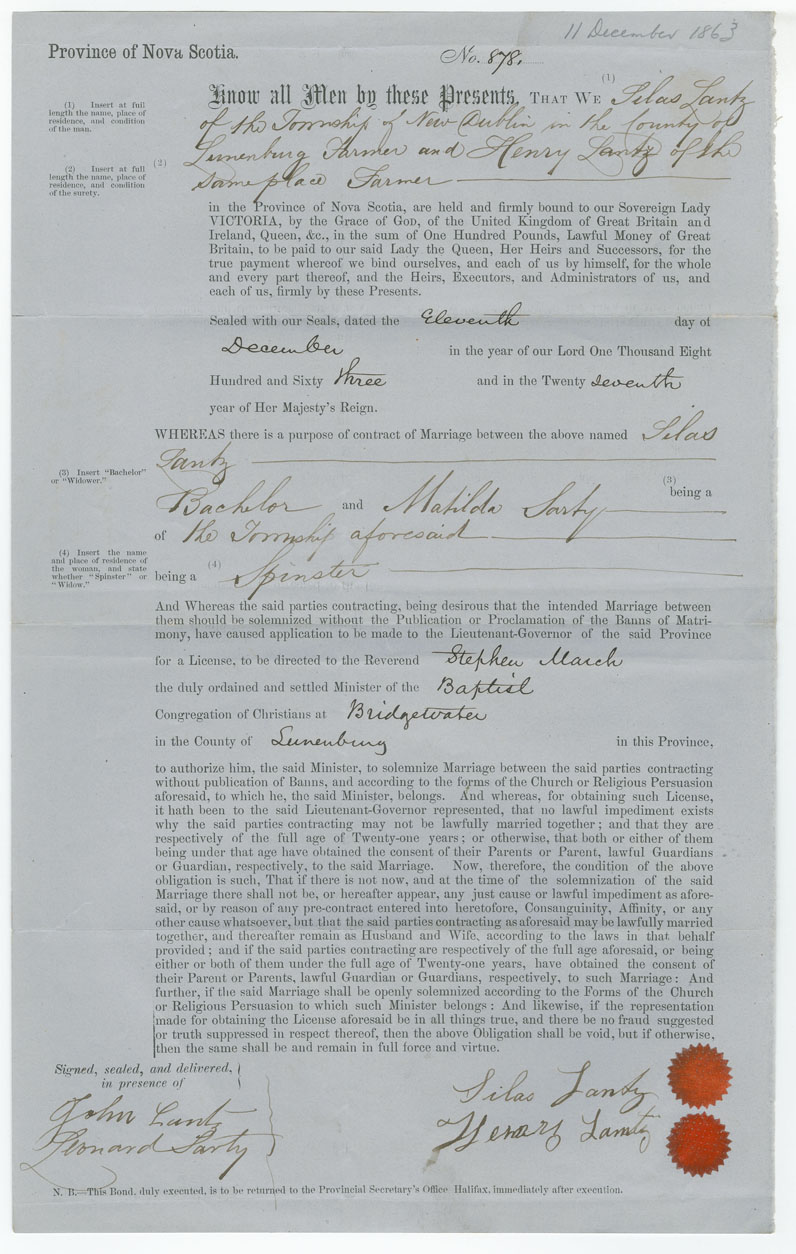 11 December 1863
Province of Nova Scotia.
No. 878.
Know all Men by these Presents, THAT WE (1) Silas Lantz
of the Township of New Dublin in the County of
(2) Lunenburg Farmer and Henry Lantz of the
same place Farmer
(1) Insert at full
length the name, place of
residence, and condition
of the man.
(2) Insert at full
length the name, place of
residence, and condition
of the surety.
in the Province of Nova Scotia, are held and firmly bound to our Sovereign Lady
VICTORIA, by the Grace of GOD, of the United Kingdom of Great Britain and
Ireland, Queen, &c., in the sum of One Hundred Pounds, Lawful Money of Great
Britain, to be paid to our said Lady the Queen, Her Heirs and Successors, for the
true payment whereof we bind ourselves, and each of us by himself, for the whole
and every part thereof, and the Heirs, Executors, and Administrators of us, and
each of us, firmly by these Presents.
Sealed with our Seals, dated the Eleventh day of
December in the year of our Lord One Thousand Eight
Hundred and Sixty three and in the Twenty seventh
year of Her Majesty's Reign.
WHEREAS there is a purpose of contract of Marriage between the above named Silas
Lantz
(3) being a
(3) Insert "Bachelor"
or "Widower."
Bachelor and Matilda Sarty
of the Township aforesaid
being a (4) Spinster
(4) Insert the name
and place of residence of
the woman, and state
whether "Spinster" or
"Widow."
And Whereas the said parties contracting, being desirous that the intended Marriage between
them should be solemnized without the Publication or Proclamation of the Banns of Matri-
mony, have caused application to be made to the Lieutenant-Governor of the said Province
for a License, to be directed to the Reverend Stephen March
the duly ordained and settled Minister of the Baptist
Congregation of Christians at Bridgewater
in the County of Lunenburg in this Province,
to authorize him, the said Minister, to solemnize Marriage between the said parties contracting
without publication of Banns, and according to the forms of the Church or Religious Persuasion
aforesaid, to which he, the said Minister, belongs. And whereas, for obtaining such License,
it hath been to the said Lieutenant-Governor represented, that no lawful impediment exists
why the said parties contracting may not be lawfully married together; and that they are
respectively of the full age of Twenty-one years; or otherwise, that both or either of them
being under that age have obtained the consent of their Parents or Parent, lawful Guardians
or Guardian, respectively, to the said Marriage. Now, therefore, the condition of the above
obligation is such, That if there is not now, and at the time of the solemnization of the said
Marriage there shall not be, or hereafter appear, any just cause or lawful impediment as afore-
said, or by reason of any pre-contract entered into heretofore, Consanguinity, Affinity, or any
other cause whatsoever, but that the said parties contracting as aforesaid may be lawfully married
together, and thereafter remain as Husband and Wife, according to the laws in that behalf
provided; and if the said parties contracting are respectively of the full age aforesaid, or being
either or both of them under the full age of Twenty-one years, have obtained the consent of
their Parent or Parents, lawful Guardian or Guardians, respectively, to such Marriage: And
further, if the said Marriage shall be openly solemnized according to the Forms of the Church
or Religious Persuasion to which such Minister belongs: And likewise, if the representation
made for obtaining the License aforesaid be in all things true, and there be no fraud suggested
or truth suppressed in respect thereof, then the above Obligation shall be void, but if otherwise,
then the same shall be and remain in full force and virtue.
Signed, sealed, and delivered,
in presence of
John Lantz
Leonard Sarty
Silas Lantz
Henery Lantz
N. B.—This Bond, duly executed, is to be returned to the Provincial Secretary's Office Halifax, immediately after execution.